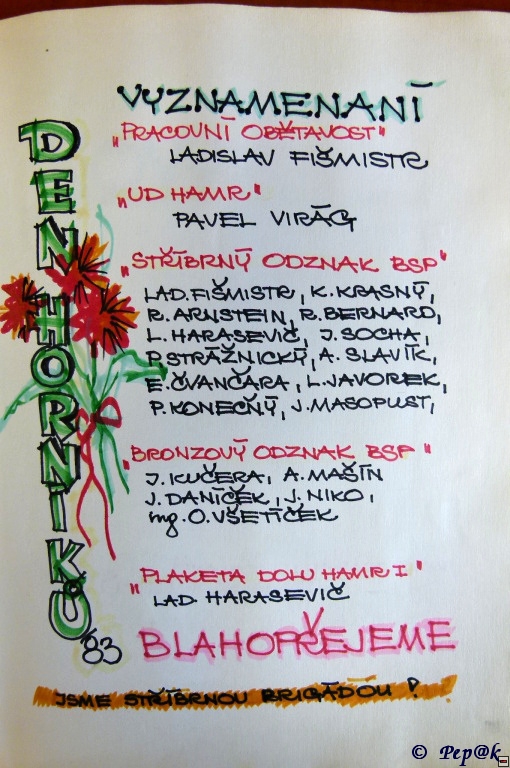 DEN HORNÍKŮ
'83
VYZNAMENANÍ
„PRACOVNÍ OBĚTAVOST"
LADISLAV FIŠMISTR
„UD HAMR"
PAVEL VIRÁG
„STŘÍBRNÝ ODZNAK BSP"
LAD. FIŠMISTR, K. KRASNÝ,
R. ARNSTEIN, R. BERNARD,
L. HARASEVIČ, J. SOCHA,
P. STRÁŽNICKÝ, A. SLAVÍK,
E. ČVANČARA, L. JAVOREK,
P. KONEČNÝ, J. MASOPUST,
„BRONZOVÝ ODZNAK BSP"
J. KUČERA, A. MAŠÍN
J. DANÍČEK, J. NIKO,
ing. O. VŠETÍČEK
„PLAKETA DOLU HAMR I"
LAD. HARASEVIČ
BLAHOPŘEJEME
JSME STŘÍBRNOU BRIGÁDOU!
© Pep@k